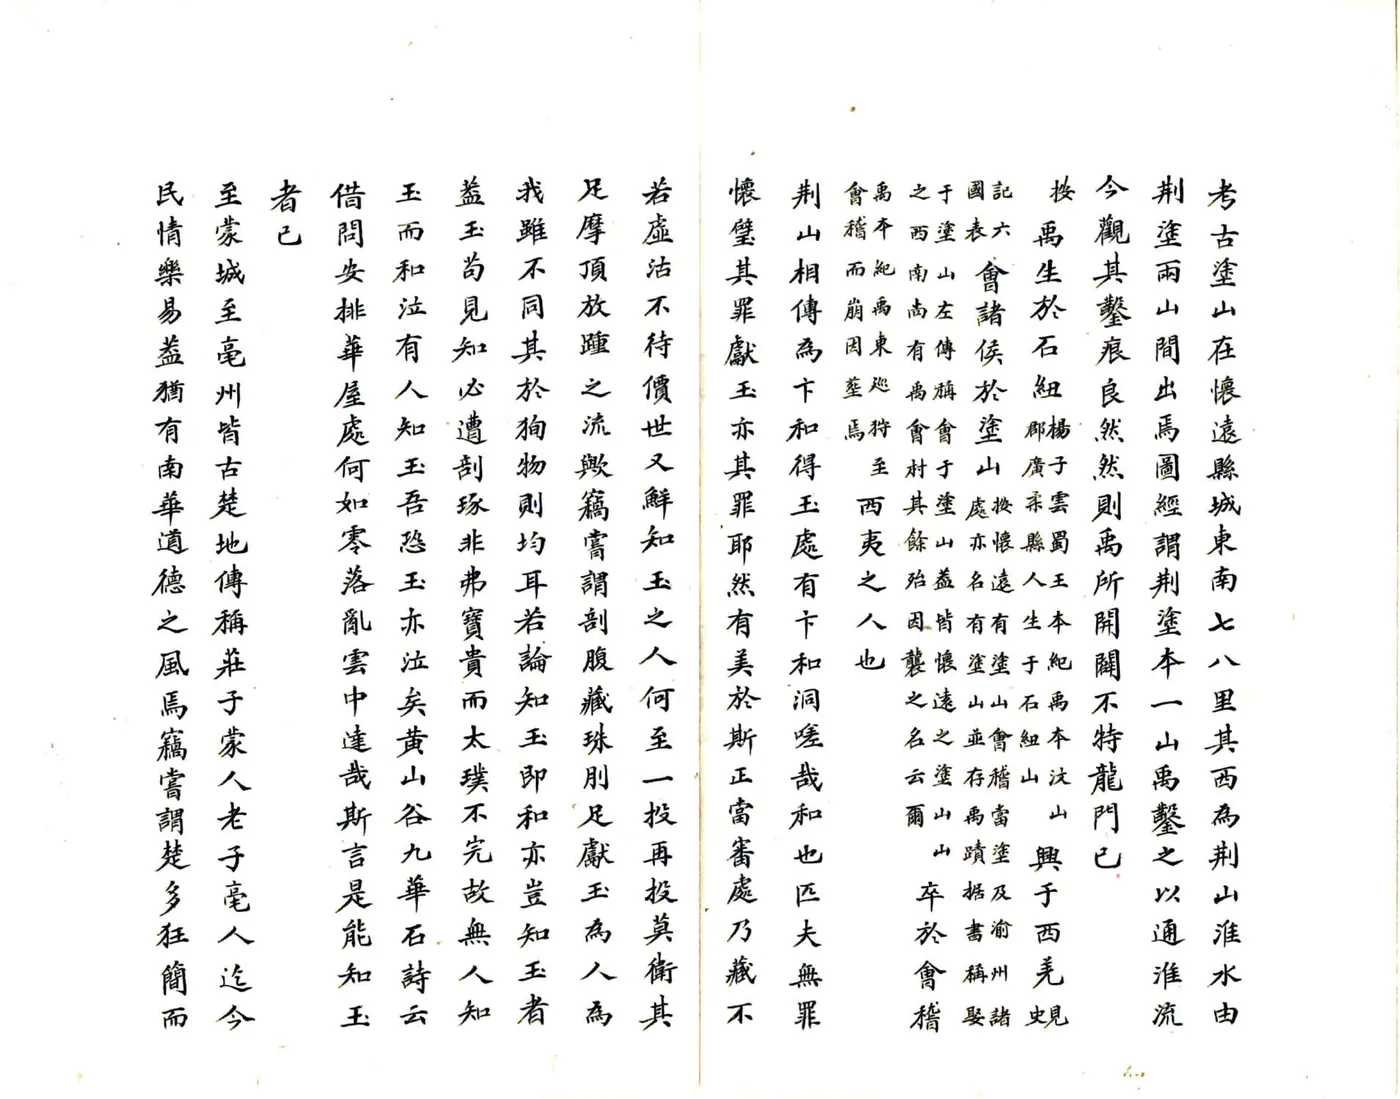 考古塗山在懷遠縣城東南七八里其西為荆山淮水由
荆塗兩山間出焉圖經謂荆塗本一山禹鑿之以通淮流
今觀其鑿痕良然然則禹所開闢不特龍門已
按禹生於石紐楊子雲蜀王本紀禹本汶山郡廣柔縣人生于石紐山興于西羌見史
記六國表會諸侯於塗山按懷遠有塗山會稽當塗及渝州諸處亦名有塗山並存禹蹟据書稱娶
于塗山左傳稱會于塗山葢皆懷遠之塗山山之西南尚有禹會村其餘殆因襲之名云爾卒於會稽
禹本紀禹東巡狩至會稽而崩因葬焉西夷之人也
荆山相傳為卞和得玉處有卞和洞嗟哉和也匹夫無罪
懷璧其罪獻玉亦其罪耶然有美於斯正當審處乃藏不
若虛沽不待價世又鮮知玉之人何至一投再投莫衛其
足摩頂放踵之流歟竊嘗謂剖腹藏珠刖足獻玉為人為
我雖不同其於狥物則均耳若論知玉即和亦豈知玉者
葢玉苟見知必遭剖琢非弗寶貴而太璞不完故無人知
玉而和泣有人知玉吾恐玉亦泣矣黃山谷九華石詩云
借問安排華屋處何如零落亂雲中達哉斯言是能知玉
者已
至蒙城至亳州皆古楚地傳稱莊子蒙人老子亳人迄今
民情樂易葢猶有南華道德之風焉竊嘗謂楚多狂簡而